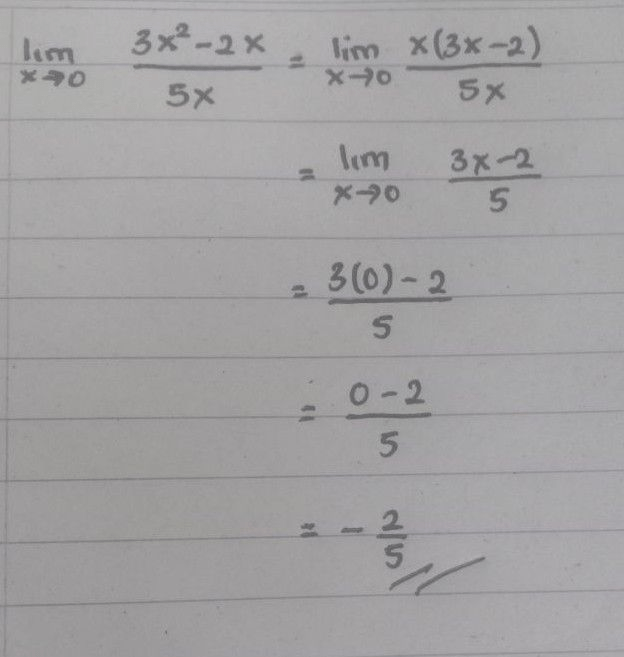 lim x→0 3x²-2x / 5x = lim x→0 x(3x-2) / 5x
= lim x→0 3x-2 / 5
= 3(0)-2 / 5
= 0-2 / 5
= - 2/5 //